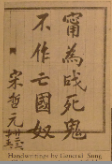 甯為戰死鬼
不作亡國奴
宋哲元
Handwritings by General Sung